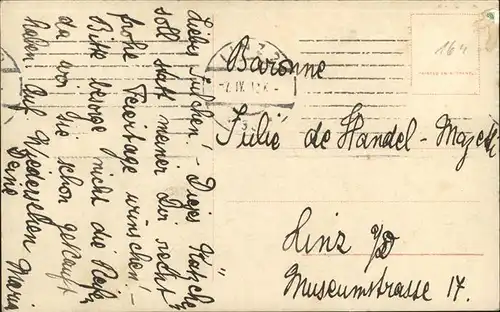 Liebes Julchen! - Dieses Kätzche
soll statt meiner Dir recht
frohe Feiertage wünschen! -
Bitte besorge nicht die
da wir sie schon gekauft
haben Auf Wiedersehen
Deine Maria
Baronne
Julie de Handel-Mazetti
Linz a/D
Museumstrasse 17.
164